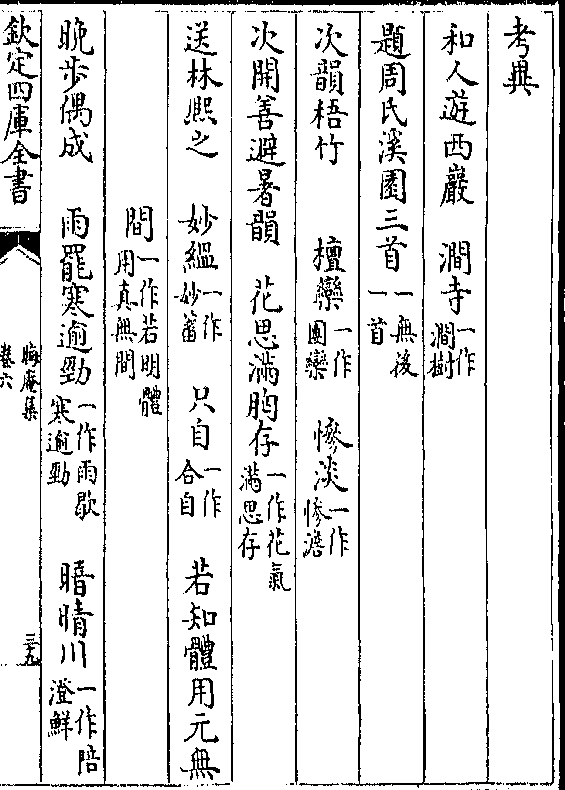 考異
和人遊西巖　澗寺一作澗樹
題周氏溪園三首一無後一首
次韻梧竹　檀欒一作團欒　慘淡一作慘澹
次開善避暑韻　花思滿胸存一作花氣滿思存
送林熙之　妙緼一作妙蓄　只自一作合自　若知體用元無
間一作若明體用真無間
晚步偶成　雨罷寒逾勁一作雨歇寒逾勁　曀晴川一作陪澄鮮
欽定四庫全書　晦庵集卷六　三九